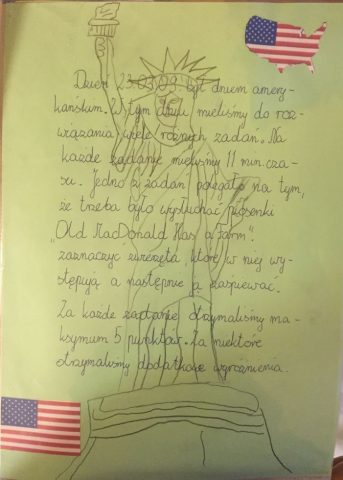 Dzień 23.03.09. był dniem amery-
kańskim. W tym dniu mieliśmy do roz-
wiązania wiele różnych zadań. Na
każde zadanie mieliśmy 11 min. cza-
su. Jedno z zadań polegało na tym,
że trzeba było wysłuchać piosenki
„Old MacDonald Has a farm".
zaznaczyć zwierzęta, które w niej wy-
stępują a następnie ją zaśpiewać.
Za każde zadanie otrzymaliśmy ma-
ksymum 5 punktów. Za niektóre
otrzymaliśmy dodatkowe wyróżnienia.